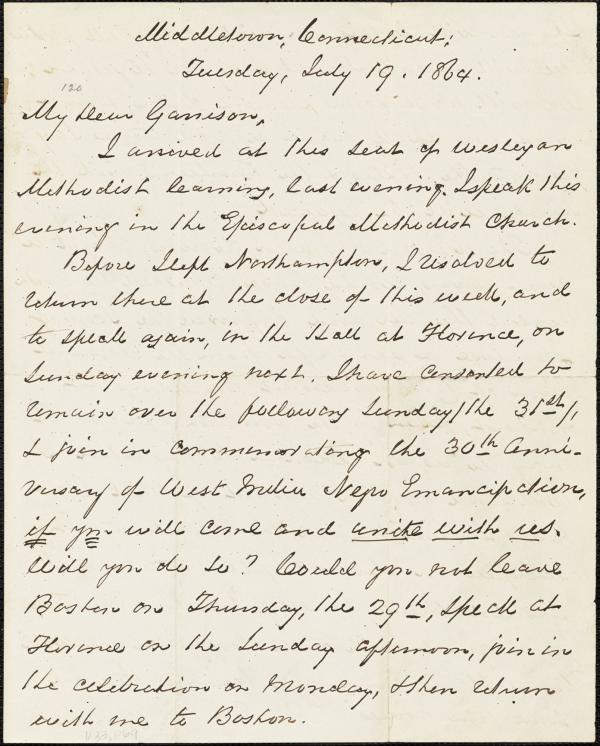 Middletown, Connecticut;
Tuesday, July 19. 1864.
120
My Dear Garrison,
I arrived at this seat of Wesleyan
Methodist learning, last evening. I speak this
evening in the Episcopal Methodist Church.
Before I left Northampton, I resolved to
return there at the close of this week, and
to speak again, in the Hall at Florence, on
Sunday evening next. I have consented to
remain over the following Sunday / the 31st /,
& join in commemorating the 30th Anni-
versary of West India Negro Emancipation,
if you will come and unite with us.
Will you do so? Could you not leave
Boston on Thursday, the 29th, speak at
Florence on the Sunday afternoon, join in
the celebration on Monday, & then return
with me to Boston.